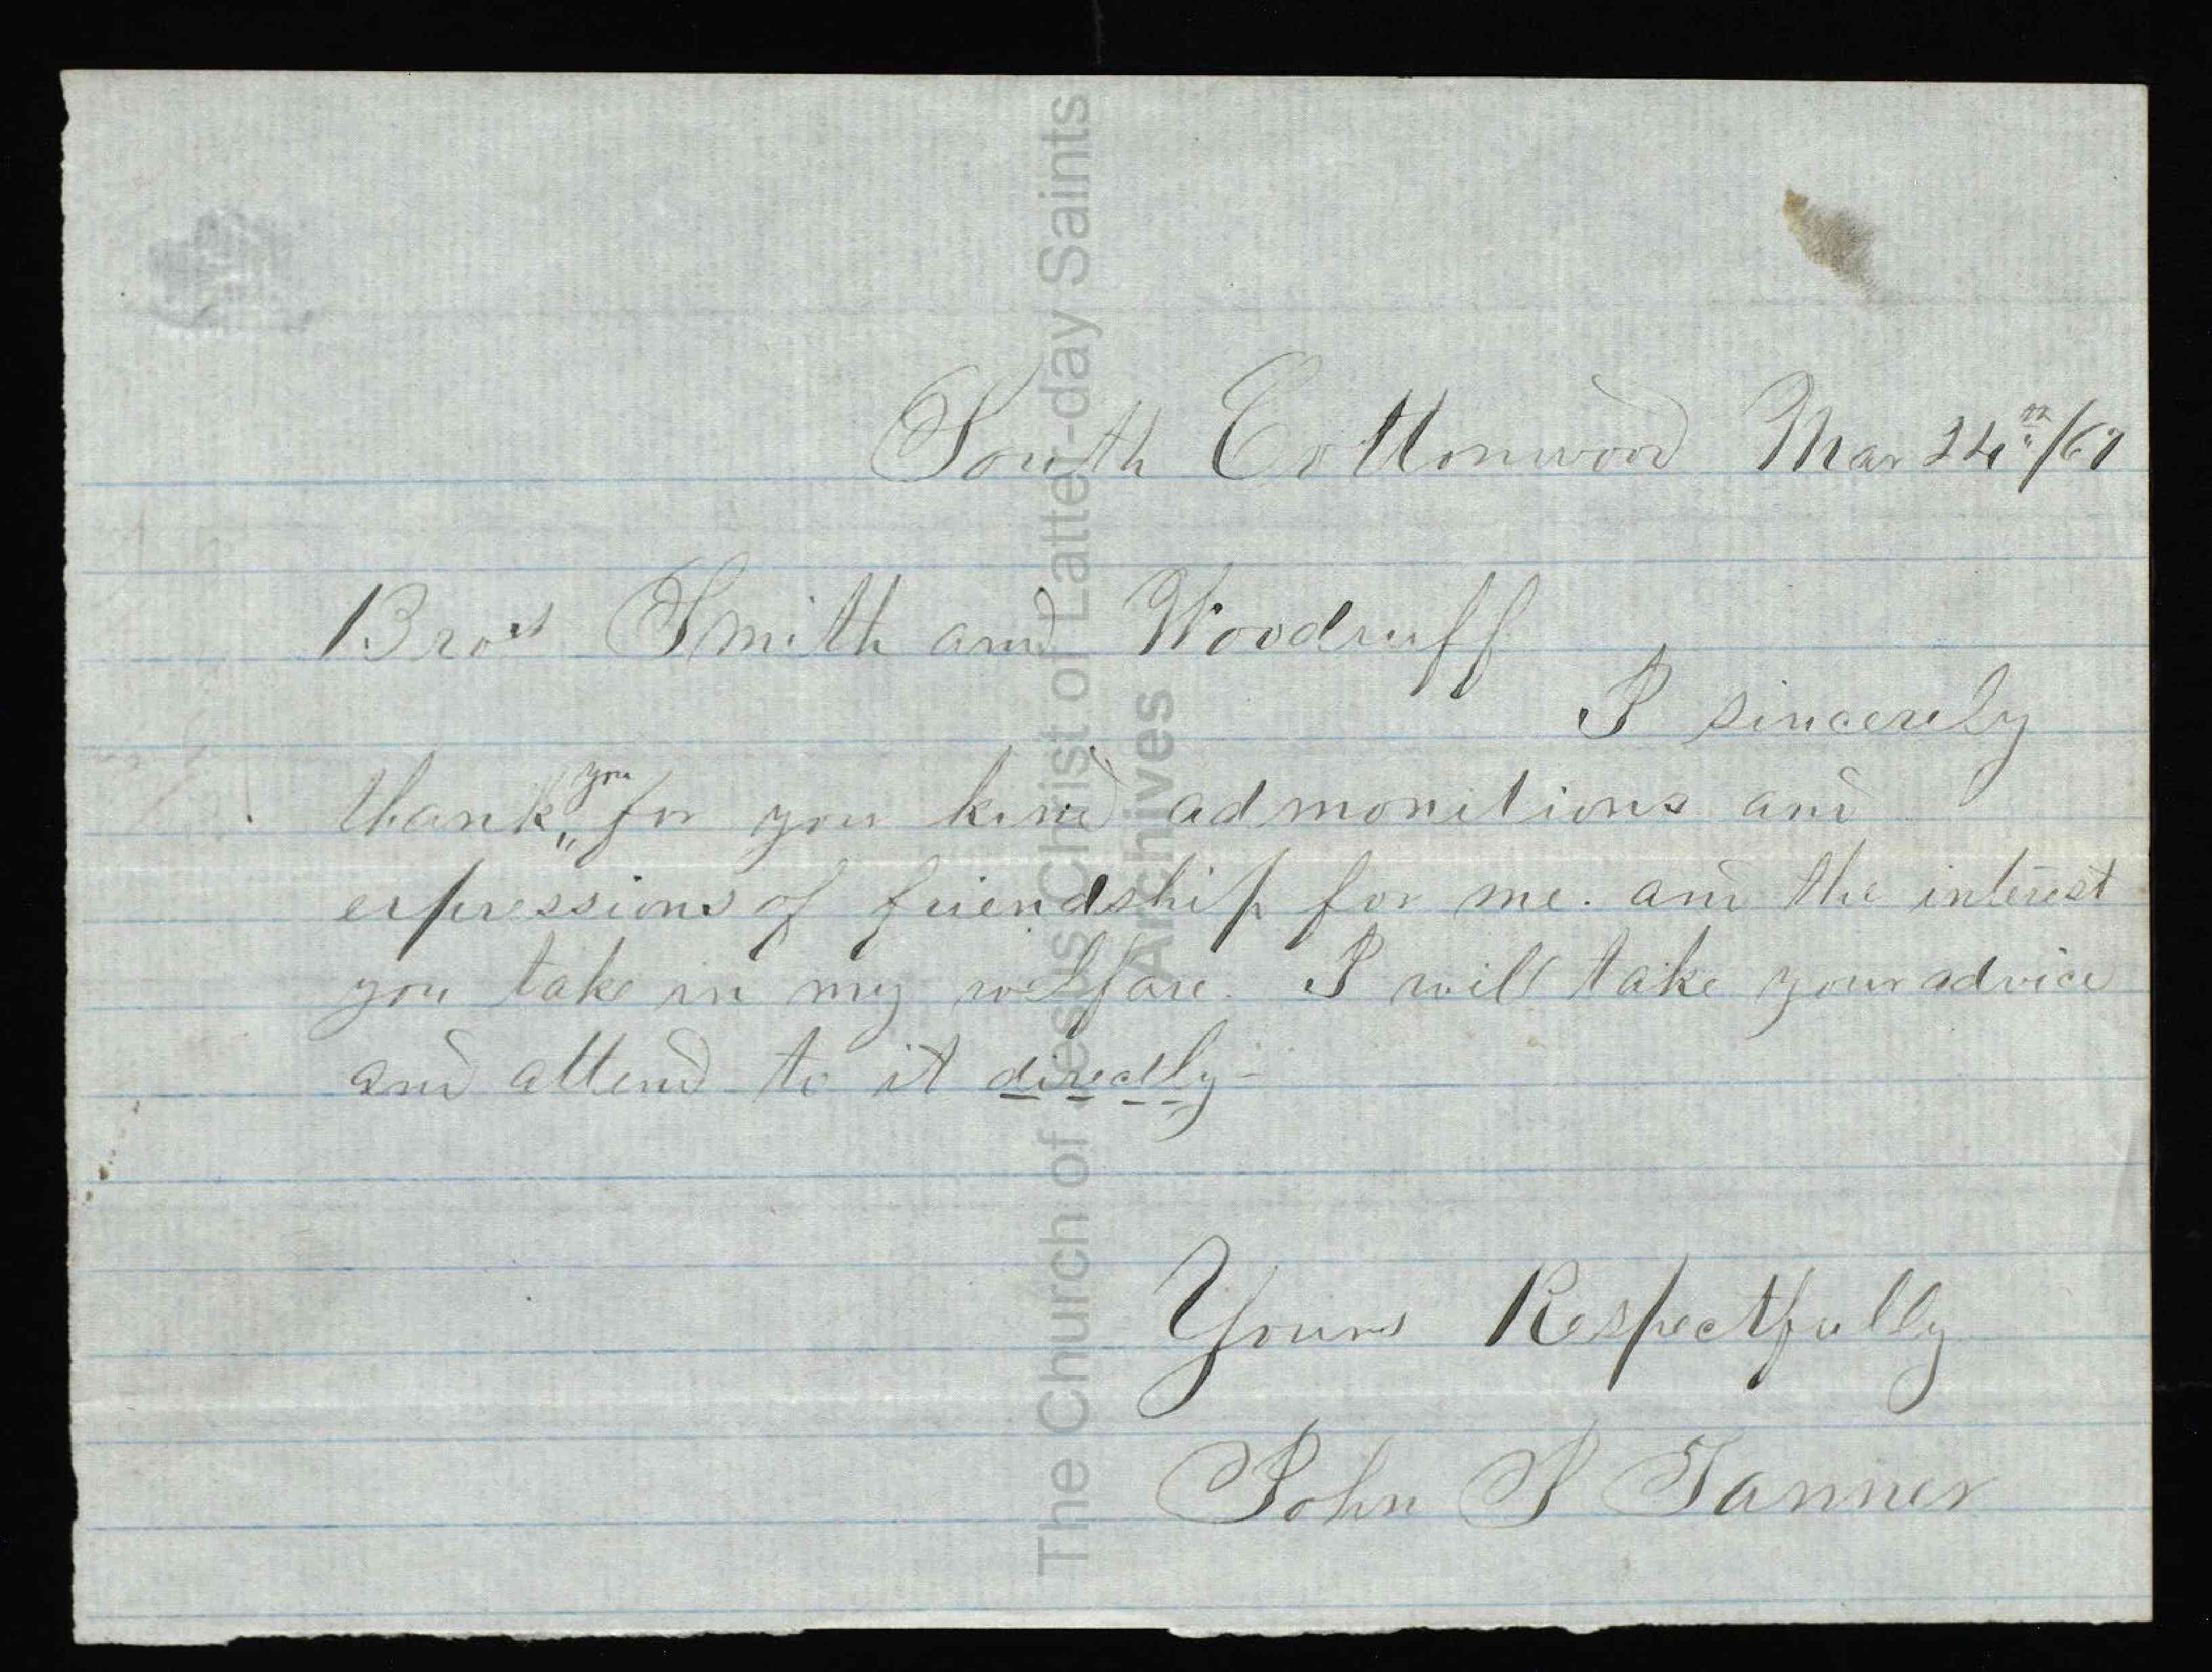 South Cottonwood Mar 24th/67
Bros Smith and Woodruff
I sincerely
thank you for you kind admonitions and
expressions of friendship for me. and the interest
you take in my welfare. I will take your advice
and attend to it directly-
Yours Respectfully
John J Tanner
The Church of Jesus Christ of Latter-day Saints
Archives